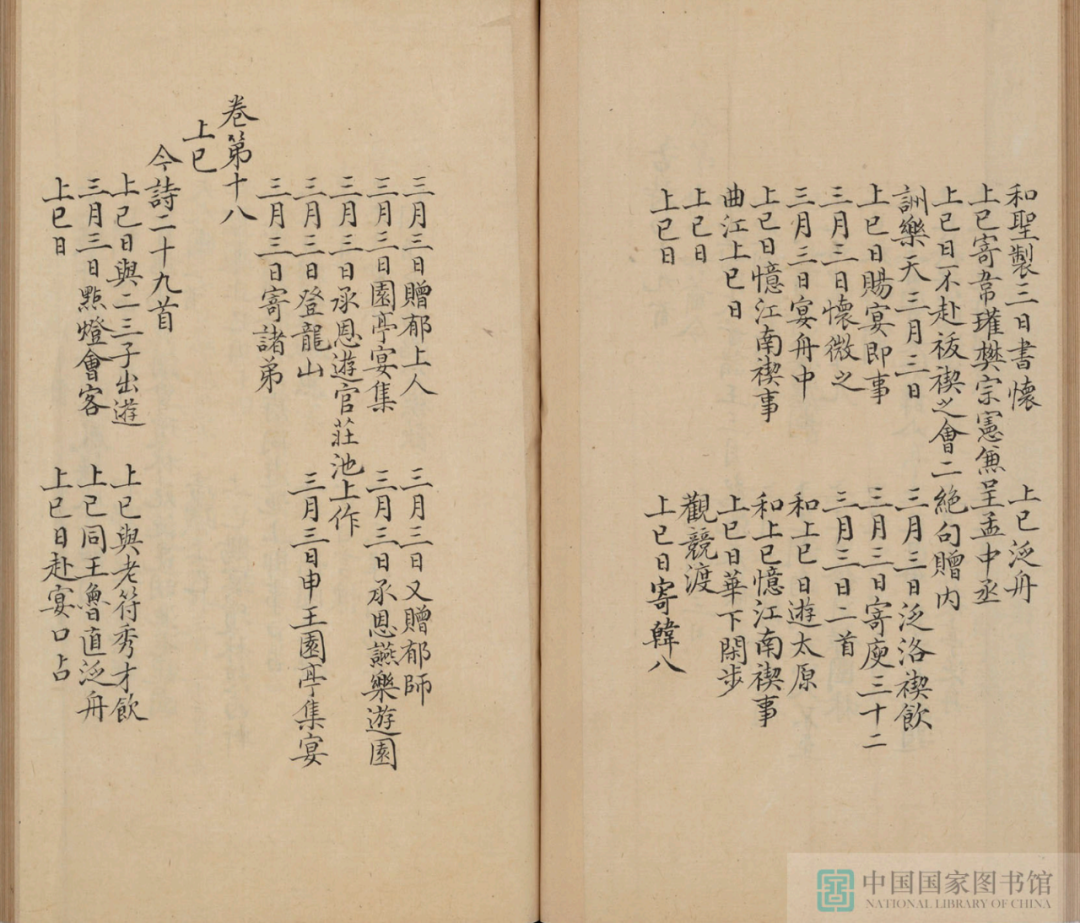 和聖製三日書懷　上巳泛舟
上巳寄韋瓘樊宗憲兼呈孟中丞
上巳日不赴祓禊之會二絶句贈内
詶樂天三月三日　三月三日泛洛禊飲
上巳日賜宴即事　三月三日寄庾三十二
三月三日懷微之　三月三日二首
三月三日宴舟中　和上巳日遊太原
上巳日憶江南禊事　和上巳憶江南禊事
曲江上巳日　上巳日華下閑步
上巳日　觀競渡
上巳日　上巳日寄韓八
三月三日贈郁上人　三月三日又贈郁師
三月三日園亭宴集　三月三日承恩讌樂遊園
三月三日承恩遊官莊池上作
三月三日登龍山　三月三日申王園亭集宴
三月三日寄諸弟
卷第十八
上巳
今詩二十九首
上巳日與二三子出遊　上巳與老符秀才飲
三月三日點燈會客　上巳同王魯直泛舟
上巳日　上巳日赴宴口占
中国国家图书馆
NATIONAL LIBRARY OF CHINA